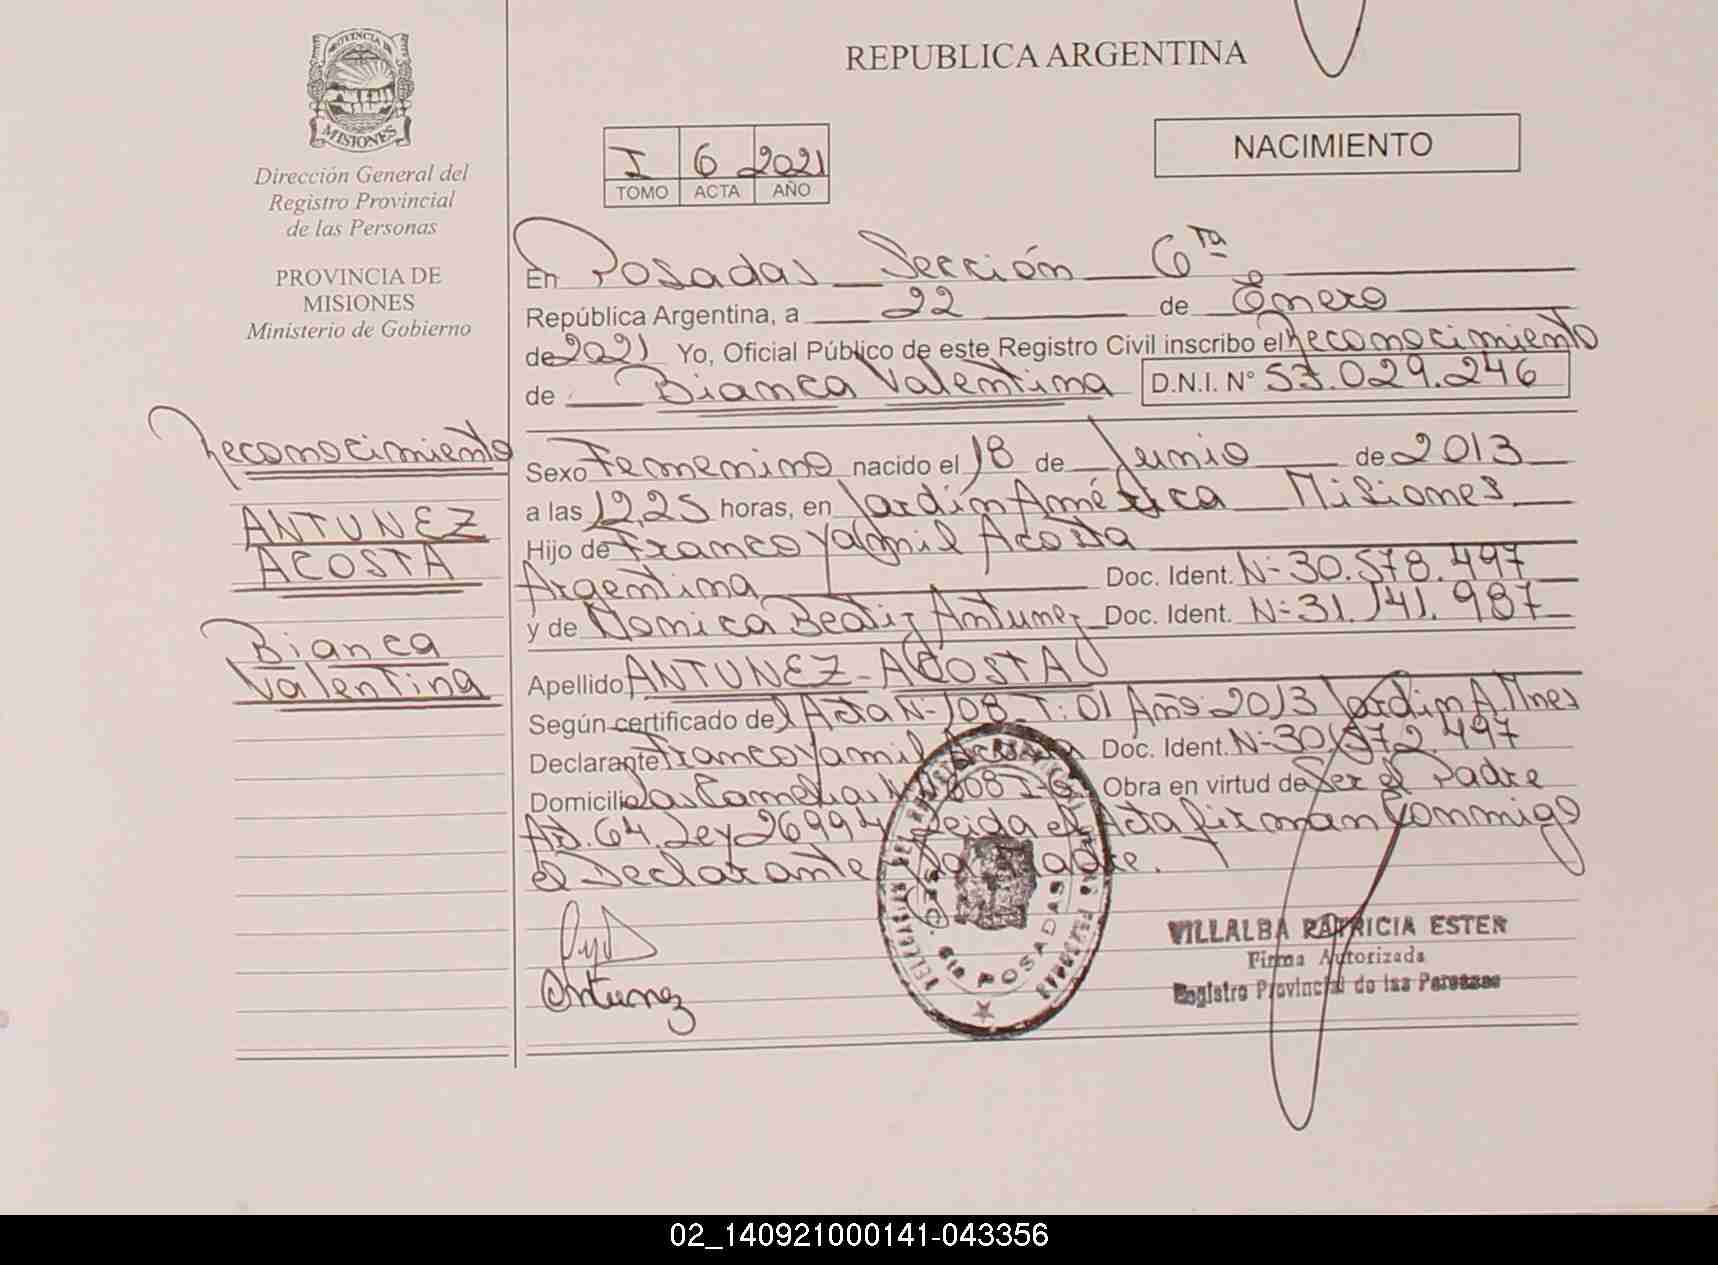 PROVINCIA DE
MISIONES
Dirección General del
Registro Provincial
de las Personas
PROVINCIA DE
MISIONES
Ministerio de Gobierno
Reconocimiento
ANTUNEZ
ACOSTA
Bianca
Valentina
REPUBLICA ARGENTINA
I 6 2021
TOMO ACTA AÑO
NACIMIENTO
En Posadas Sección 6ta
República Argentina, a 22 de Enero
de 2021 Yo, Oficial Público de este Registro Civil inscribo el Reconocimiento
de Bianca Valentina D.N.I. N° 53.029.246
Sexo Femenino nacido el 18 de Junio de 2013
a las 12,25 horas, en Jardín América Misiones
Hijo de Franco Yamil Acosta
Argentina Doc. Ident. N° 30.578.497
y de Monica Beatiz Antunez Doc. Ident. N° 31.141.987
Apellido ANTUNEZ - ACOSTA
Según certificado del Acta N° 108 T: 01 Año 2013 Jardin A. Mnes
Declarante Franco Yamil Doc. Ident. N° 30.572.497
Domicilio Las Camelias 808 Obra en virtud de Ser el Padre
Art. 64. Ley 26994 Leida el Acta firman Conmigo
el Declarante la Madre.
Antunez
POSADAS
VILLALBA PATRICIA ESTER
Firma Autorizada
Registro Provincial de las Personas
02_140921000141-043356